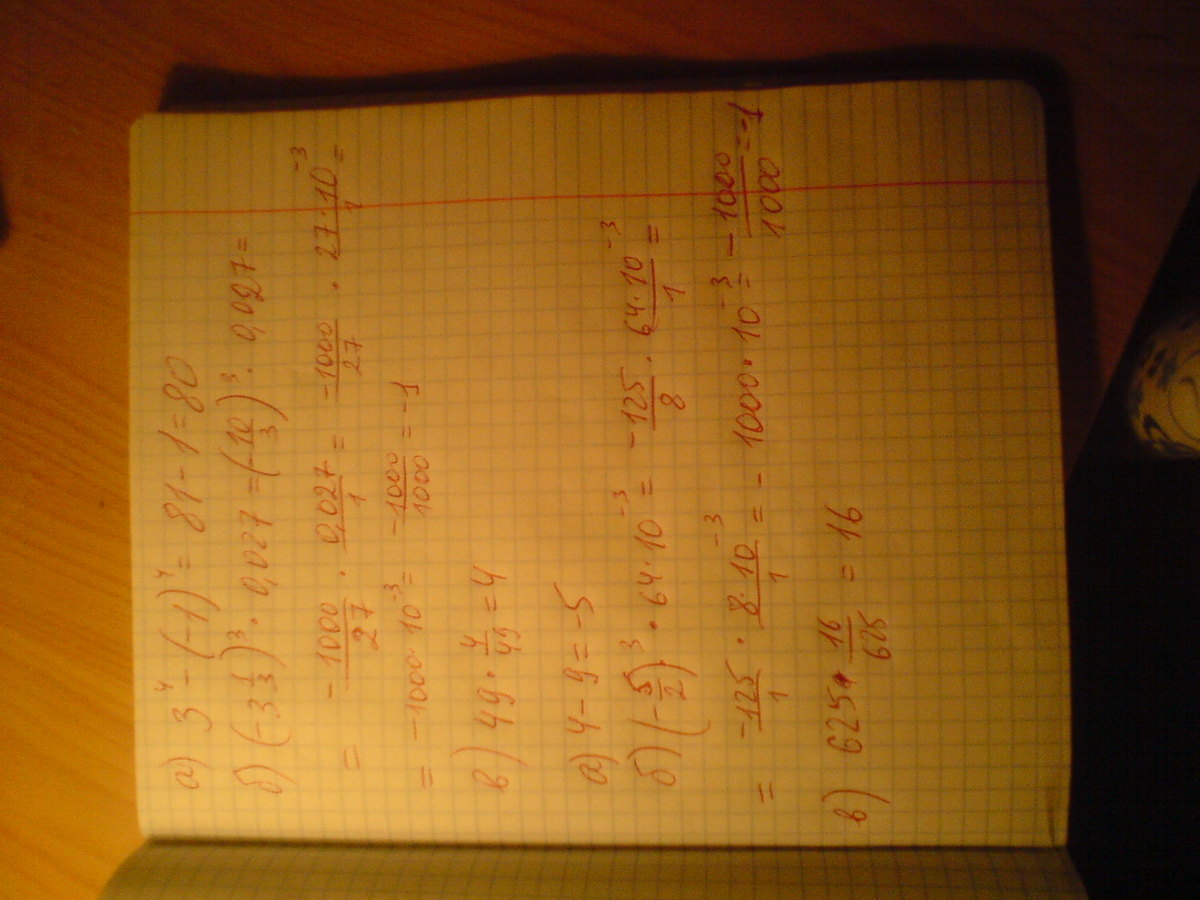 а) 3⁴ - (-1)⁴ = 81 - 1 = 80
б) (-3 1/3)³ · 0,027 = (-10/3)³ · 0,027 =
= -1000/27 · 0,027/1 = -1000/27 · 27·10⁻³/1 =
= -1000 · 10⁻³ = -1000/1000 = -1
в) 49 · 4/49 = 4
а) 4 - 9 = -5
б) (-5/2)³ · 64 · 10⁻³ = -125/8 · 64·10⁻³/1 =
= -125/1 · 8·10⁻³/1 = - 1000 · 10⁻³ = -1000/1000 = -1
в) 625 · 16/625 = 16